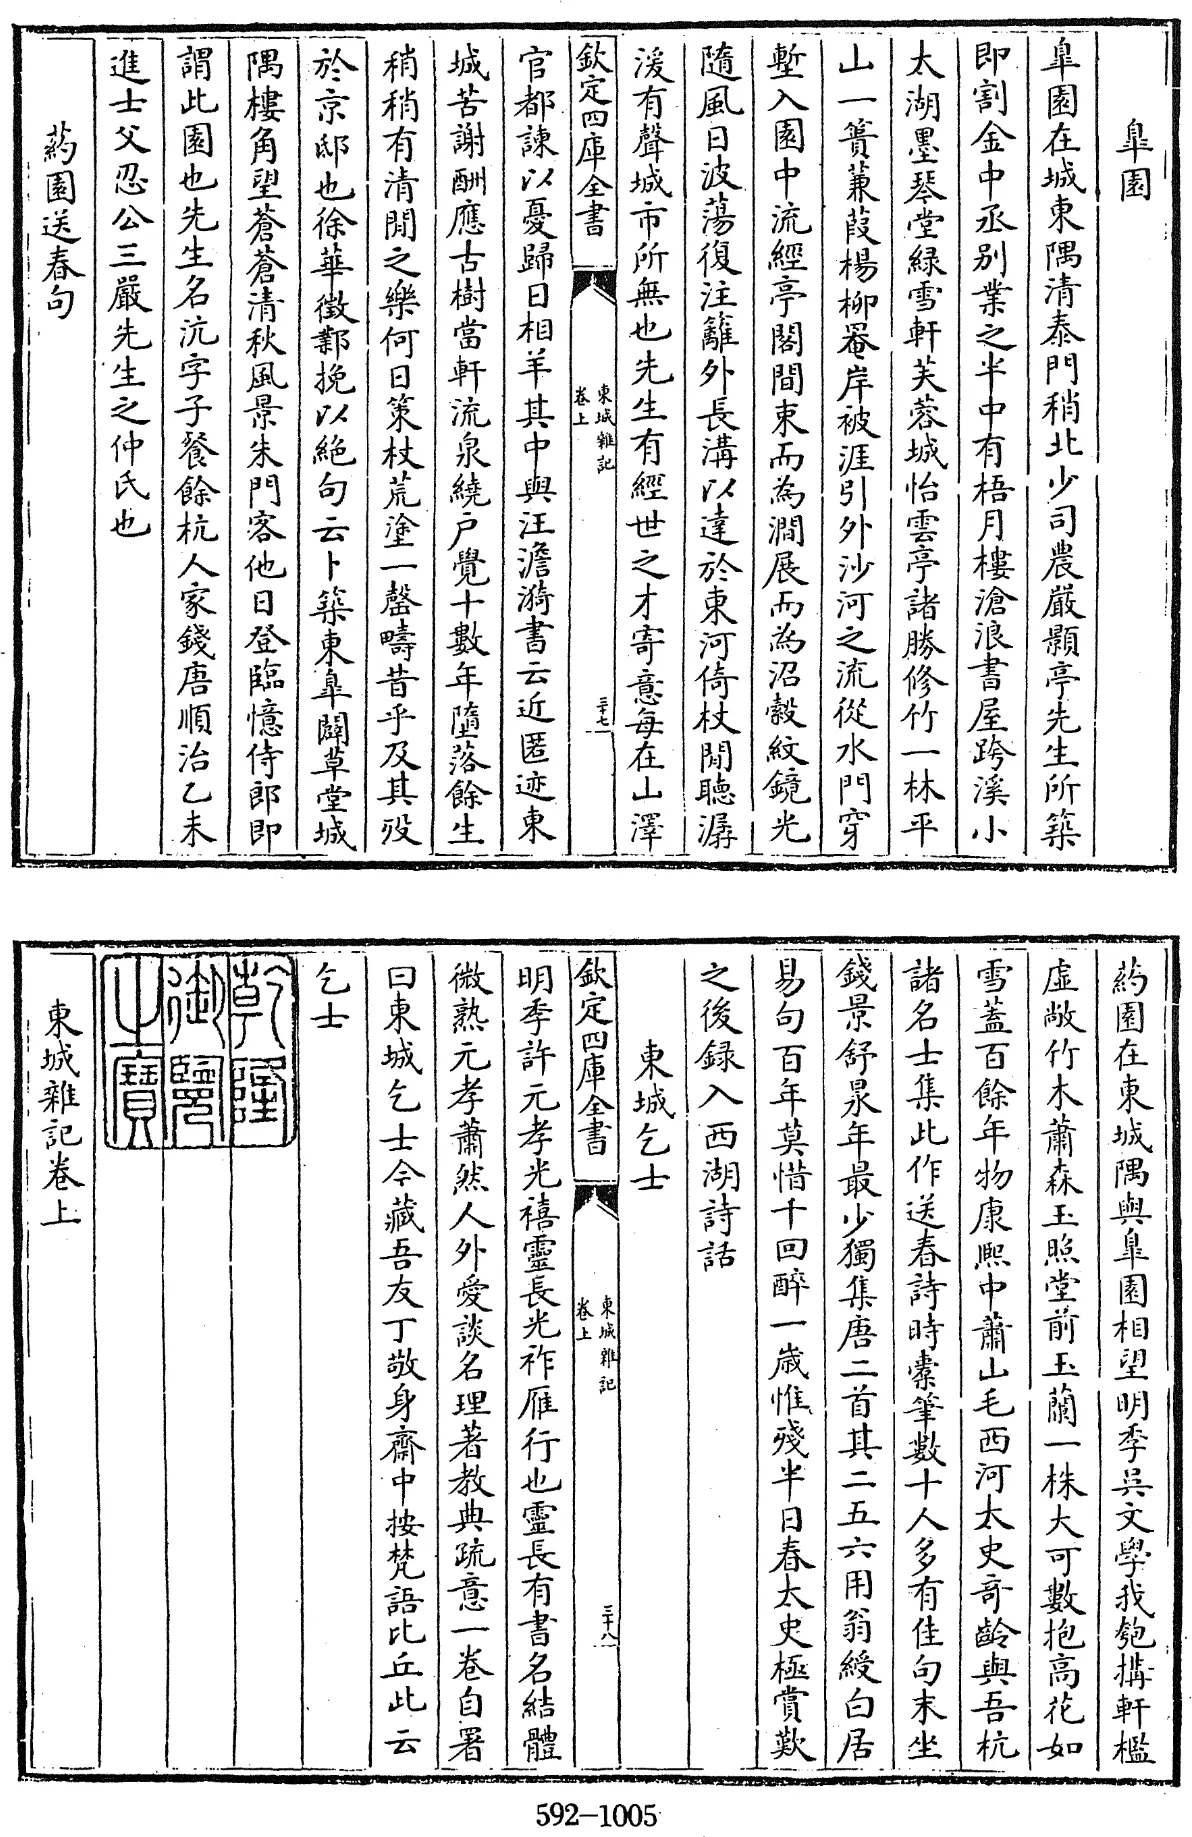 皐園
皐園在城東隅清泰門稍北少司農嚴顥亭先生所築
即割金中丞别業之半中有梧月樓滄浪書屋跨溪小
太湖墨琴堂緑雪軒芙蓉城怡雲亭諸勝修竹一林平
山一簣蒹葭楊柳罨岸被涯引外沙河之流從水門穿
塹入園中流經亭閣間束而為澗展而為沼縠紋鏡光
隨風日波蕩復注籬外長溝以達於東河倚杖閒聽潺
湲有聲城市所無也先生有經世之才寄意每在山澤
欽定四庫全書
東城雜記
卷上
三十七
官都諫以憂歸日相羊其中與汪澹漪書云近匿迹東
城苦謝酬應古樹當軒流泉繞户覺十數年墮落餘生
稍稍有清閒之樂何日策杖荒塗一罄疇昔乎及其殁
於京邸也徐華徵鄴挽以絕句云卜築東皐闢草堂城
隅樓角望蒼蒼清秋風景朱門客他日登臨憶侍郎即
謂此園也先生名沆字子餐餘杭人家錢唐順治乙未
進士父忍公三嚴先生之仲氏也
葯園送春句
葯園在東城隅與皐園相望明季吳文學我匏搆軒檻
虛敞竹木蕭森玉照堂前玉蘭一株大可數抱高花如
雪蓋百餘年物康熙中蕭山毛西河太史奇齡與吾杭
諸名士集此作送春詩時橐筆數十人多有佳句末坐
錢景舒泉年最少獨集唐二首其二五六用翁綬白居
易句百年莫惜千回醉一歲惟殘半日春太史極賞歎
之後録入西湖詩話
東城乞士
欽定四庫全書
東城雜記
卷上
三十八
明季許元孝光禧靈長光祚雁行也靈長有書名結體
微熟元孝蕭然人外愛談名理著教典疏意一卷自署
曰東城乞士今藏吾友丁敬身齋中按梵語比丘此云
乞士
乾隆
御覽
之寶
東城雜記卷上
592-1005